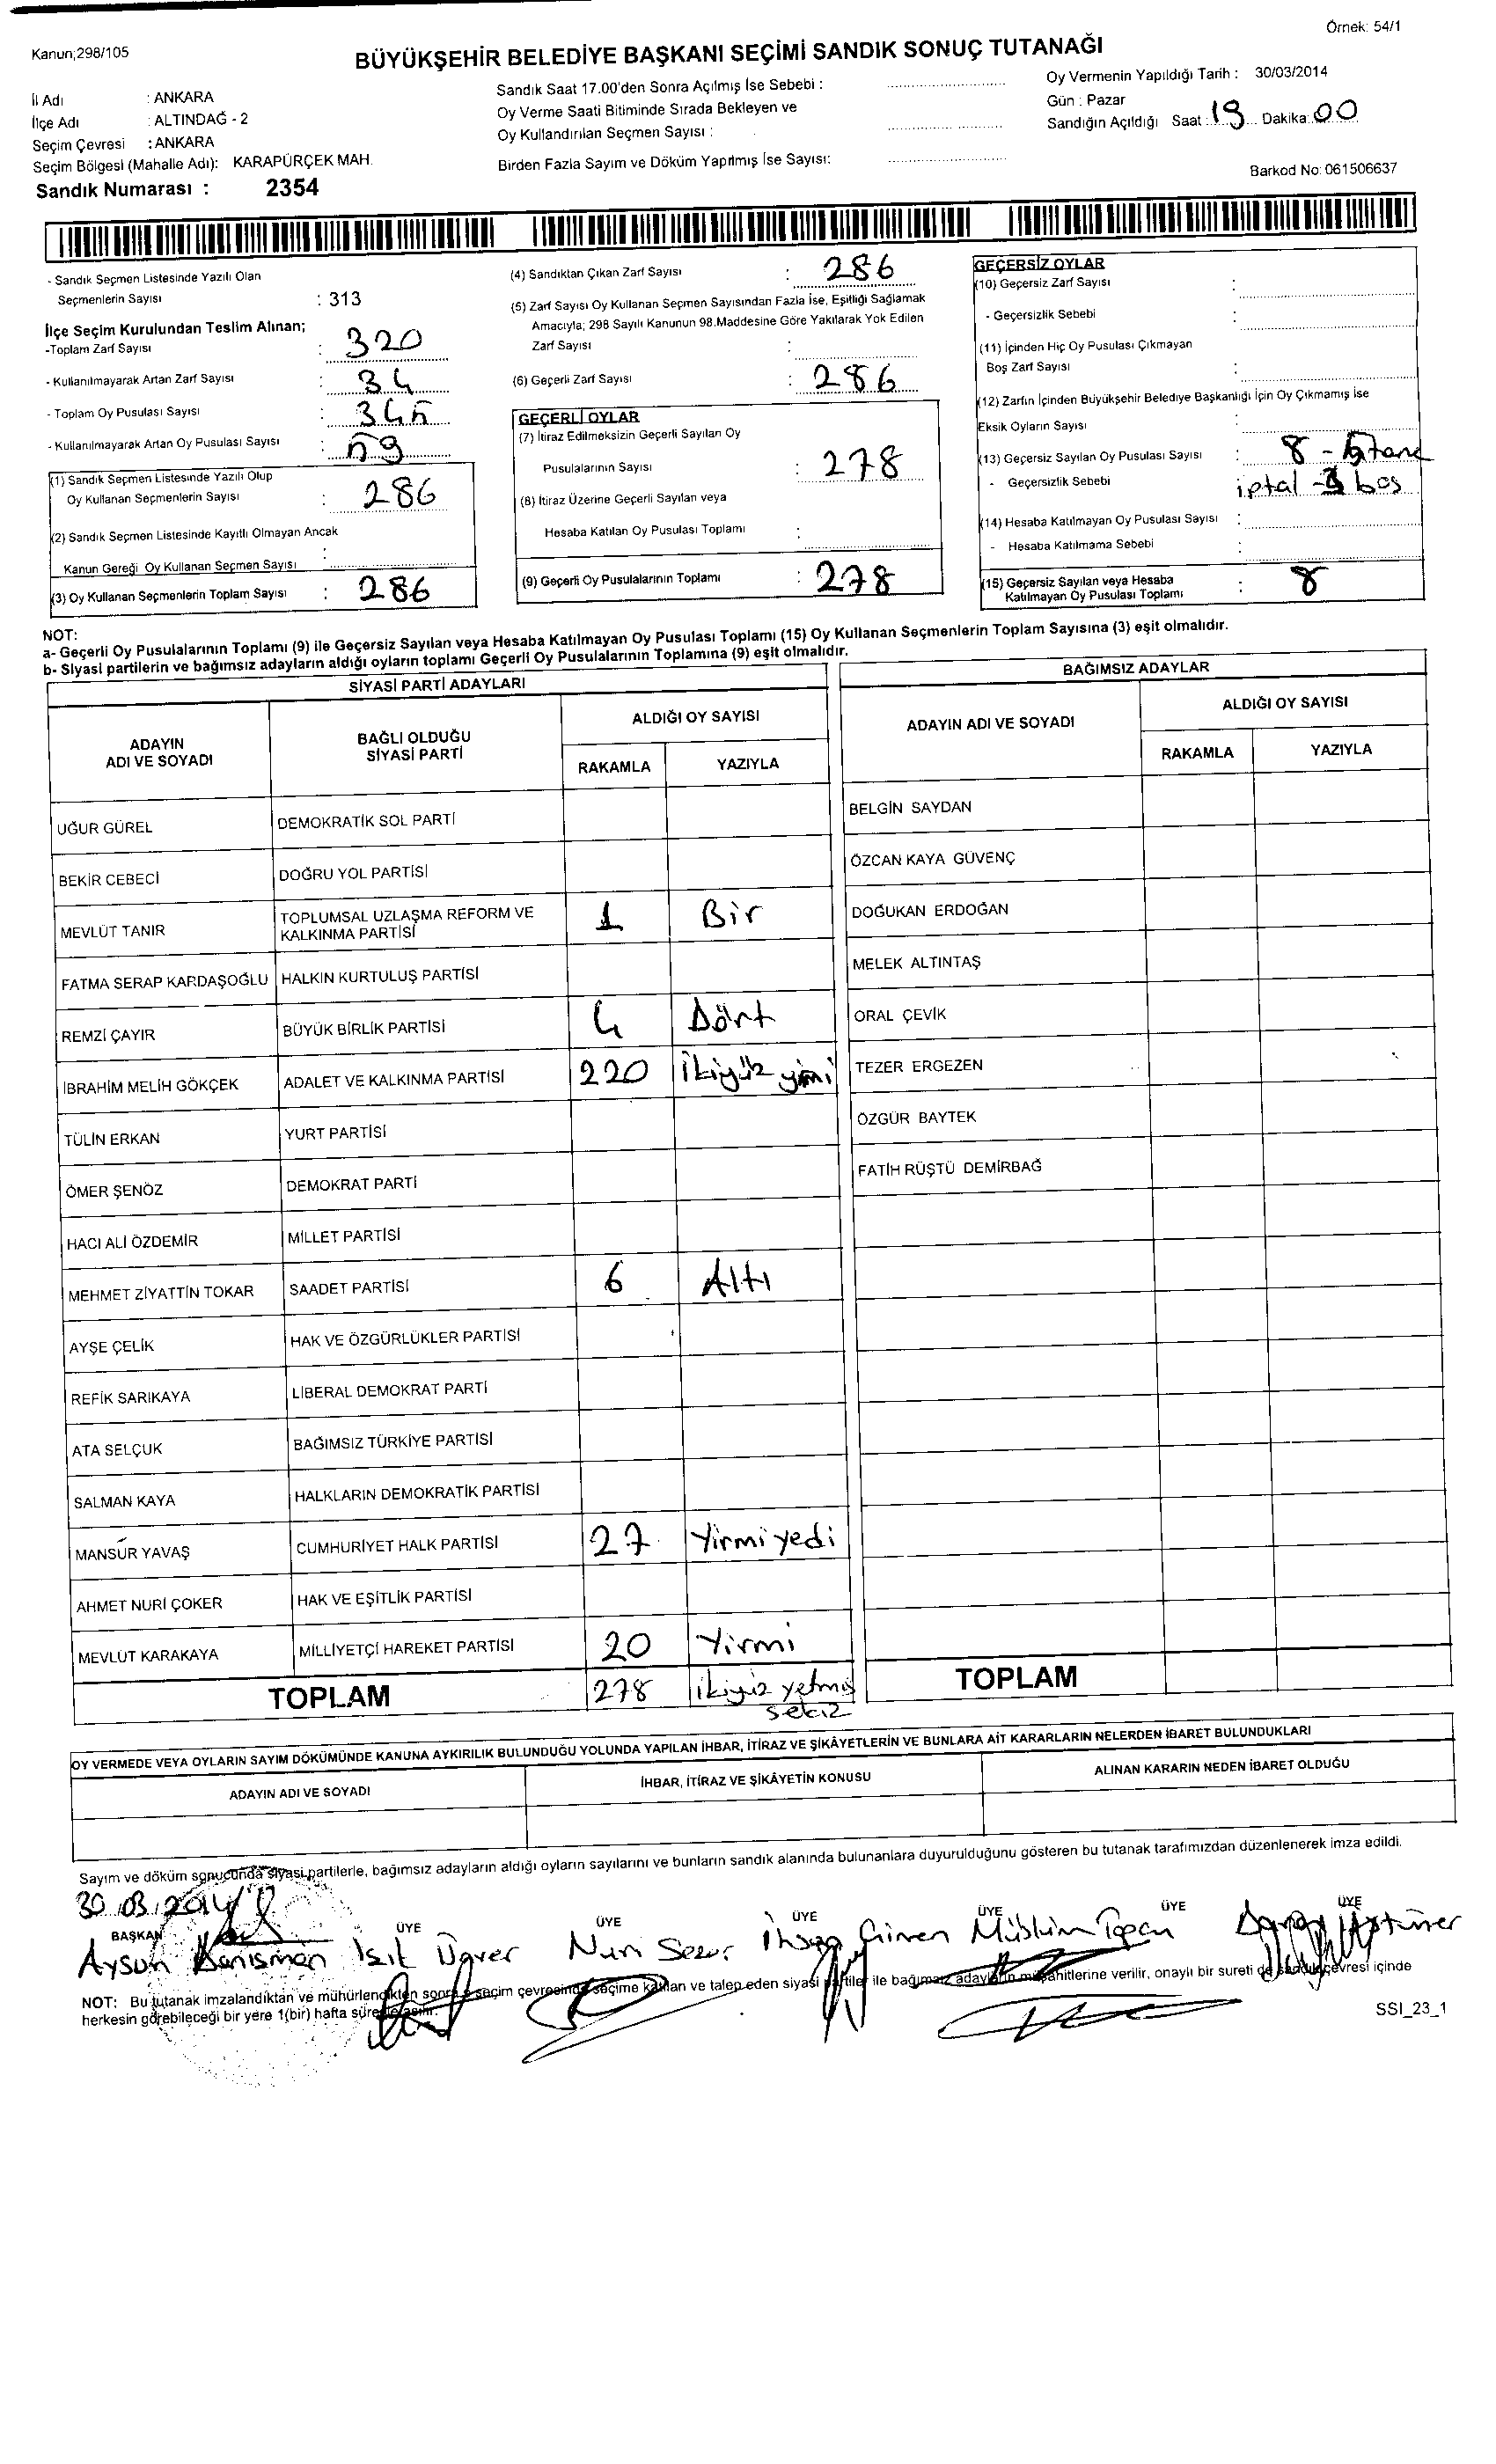 Örnek: 54/1
Kanun;298/105
BÜYÜKŞEHİR BELEDİYE BAŞKANI SEÇİMİ SANDIK SONUÇ TUTANAĞI
İl Adı : ANKARA
İlçe Adı : ALTINDAĞ - 2
Seçim Çevresi : ANKARA
Seçim Bölgesi (Mahalle Adı): KARAPÜRÇEK MAH.
Sandık Numarası : 2354
Sandık Saat 17.00'den Sonra Açılmış İse Sebebi :
Oy Verme Saati Bitiminde Sırada Bekleyen ve
Oy Kullandırılan Seçmen Sayısı :
Birden Fazla Sayım ve Döküm Yapılmış İse Sayısı:
Oy Vermenin Yapıldığı Tarih : 30/03/2014
Gün : Pazar
Sandığın Açıldığı Saat : 19 Dakika: 00
Barkod No: 061506637
- Sandık Seçmen Listesinde Yazılı Olan
Seçmenlerin Sayısı : 313
İlçe Seçim Kurulundan Teslim Alınan;
-Toplam Zarf Sayısı : 320
- Kullanılmayarak Artan Zarf Sayısı : 34
- Toplam Oy Pusulası Sayısı : 345
- Kullanılmayarak Artan Oy Pusulası Sayısı : 59
(1) Sandık Seçmen Listesinde Yazılı Olup
Oy Kullanan Seçmenlerin Sayısı : 286
(2) Sandık Seçmen Listesinde Kayıtlı Olmayan Ancak
Kanun Gereği Oy Kullanan Seçmen Sayısı :
(3) Oy Kullanan Seçmenlerin Toplam Sayısı : 286
(4) Sandıktan Çıkan Zarf Sayısı : 286
(5) Zarf Sayısı Oy Kullanan Seçmen Sayısından Fazla İse, Eşitliği Sağlamak
Amacıyla; 298 Sayılı Kanunun 98.Maddesine Göre Yakılarak Yok Edilen
Zarf Sayısı :
(6) Geçerli Zarf Sayısı : 286
GEÇERLİ OYLAR
(7) İtiraz Edilmeksizin Geçerli Sayılan Oy
Pusulalarının Sayısı : 278
(8) İtiraz Üzerine Geçerli Sayılan veya
Hesaba Katılan Oy Pusulası Toplamı :
(9) Geçerli Oy Pusulalarının Toplamı : 278
GEÇERSİZ OYLAR
(10) Geçersiz Zarf Sayısı :
- Geçersizlik Sebebi :
(11) İçinden Hiç Oy Pusulası Çıkmayan
Boş Zarf Sayısı :
(12) Zarfın İçinden Büyükşehir Belediye Başkanlığı İçin Oy Çıkmamış İse
Eksik Oyların Sayısı
(13) Geçersiz Sayılan Oy Pusulası Sayısı : 8 -
- Geçersizlik Sebebi : iptal - boş
(14) Hesaba Katılmayan Oy Pusulası Sayısı :
- Hesaba Katılmama Sebebi :
(15) Geçersiz Sayılan veya Hesaba
Katılmayan Oy Pusulası Toplamı : 8
NOT:
a- Geçerli Oy Pusulalarının Toplamı (9) ile Geçersiz Sayılan veya Hesaba Katılmayan Oy Pusulası Toplamı (15) Oy Kullanan Seçmenlerin Toplam Sayısına (3) eşit olmalıdır.
b- Siyasi partilerin ve bağımsız adayların aldığı oyların toplamı Geçerli Oy Pusulalarının Toplamına (9) eşit olmalıdır.
SİYASİ PARTİ ADAYLARI
ADAYIN ADI VE SOYADI BAĞLI OLDUĞU SİYASİ PARTİ ALDIĞI OY SAYISI
RAKAMLA YAZIYLA
UĞUR GÜREL DEMOKRATİK SOL PARTİ
BEKİR CEBECİ DOĞRU YOL PARTİSİ
MEVLÜT TANIR TOPLUMSAL UZLAŞMA REFORM VE KALKINMA PARTİSİ 1 Bir
FATMA SERAP KARDAŞOĞLU HALKIN KURTULUŞ PARTİSİ
REMZİ ÇAYIR BÜYÜK BİRLİK PARTİSİ 4 Dört
İBRAHİM MELİH GÖKÇEK ADALET VE KALKINMA PARTİSİ 220 ikiyüz yirmi
TÜLİN ERKAN YURT PARTİSİ
ÖMER ŞENÖZ DEMOKRAT PARTİ
HACI ALİ ÖZDEMİR MİLLET PARTİSİ
MEHMET ZİYATTİN TOKAR SAADET PARTİSİ 6 Altı
AYŞE ÇELİK HAK VE ÖZGÜRLÜKLER PARTİSİ
REFİK SARIKAYA LİBERAL DEMOKRAT PARTİ
ATA SELÇUK BAĞIMSIZ TÜRKİYE PARTİSİ
SALMAN KAYA HALKLARIN DEMOKRATİK PARTİSİ
MANSUR YAVAŞ CUMHURİYET HALK PARTİSİ 27 Yirmi yedi
AHMET NURİ ÇOKER HAK VE EŞİTLİK PARTİSİ
MEVLÜT KARAKAYA MİLLİYETÇİ HAREKET PARTİSİ 20 Yirmi
TOPLAM 278 ikiyüz yetmiş
sekiz
BAĞIMSIZ ADAYLAR
ADAYIN ADI VE SOYADI ALDIĞI OY SAYISI
RAKAMLA YAZIYLA
BELGİN SAYDAN
ÖZCAN KAYA GÜVENÇ
DOĞUKAN ERDOĞAN
MELEK ALTINTAŞ
ORAL ÇEVİK
TEZER ERGEZEN
ÖZGÜR BAYTEK
FATİH RÜŞTÜ DEMİRBAĞ
TOPLAM
OY VERMEDE VEYA OYLARIN SAYIM DÖKÜMÜNDE KANUNA AYKIRILIK BULUNDUĞU YOLUNDA YAPILAN İHBAR, İTİRAZ VE ŞİKÂYETLERİN VE BUNLARA AİT KARARLARIN NELERDEN İBARET BULUNDUKLARI
ADAYIN ADI VE SOYADI İHBAR, İTİRAZ VE ŞİKÂYETİN KONUSU ALINAN KARARIN NEDEN İBARET OLDUĞU
Sayım ve döküm sonucunda siyasi partilerle, bağımsız adayların aldığı oyların sayılarını ve bunların sandık alanında bulunanlara duyurulduğunu gösteren bu tutanak tarafımızdan düzenlenerek imza edildi.
30.03.2014
BAŞKAN ÜYE ÜYE ÜYE ÜYE ÜYE ÜYE
Aysun Danışman Işıt Nuri Sezer Müslüm
NOT: Bu tutanak imzalandıktan ve mühürlendikten sonra seçim çevresinde seçime katılan ve talep eden siyasi partiler ile bağımsız adayların müşahitlerine verilir, onaylı bir sureti de sandık çevresi içinde
herkesin görebileceği bir yere 1(bir) hafta süre asılır.
SSI_23_1